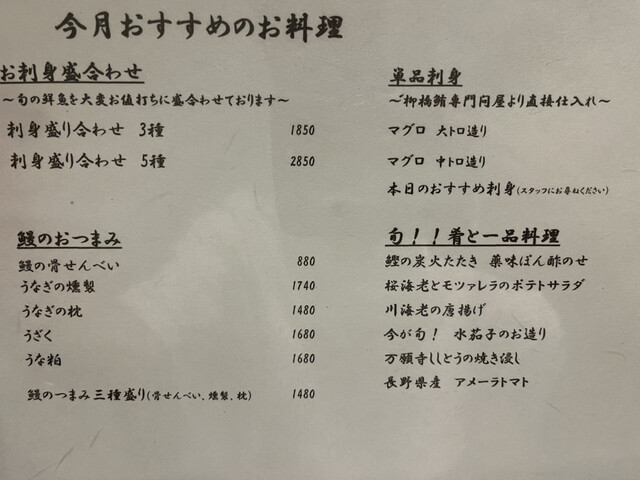 今月おすすめのお料理
お刺身盛合わせ
～旬の鮮魚を大変お値打ちに盛合わせております～
刺身盛り合わせ 3種 1850
刺身盛り合わせ 5種 2850
鰻のおつまみ
鰻の骨せんべい 880
うなぎの燻製 1740
うなぎの枕 1480
うざく 1680
うな粕 1680
鰻のつまみ三種盛り(骨せんべい、燻製、枕) 1480
単品刺身
～柳橋鮪専門問屋より直接仕入れ～
マグロ 大トロ造り
マグロ 中トロ造り
本日のおすすめ刺身(スタッフにお尋ねください)
旬！！肴と一品料理
鰹の炭火たたき 薬味ぽん酢のせ
桜海老とモツァレラのポテトサラダ
川海老の唐揚げ
今が旬！ 水茄子のお造り
万願寺ししとうの焼き浸し
長野県産 アメーラトマト